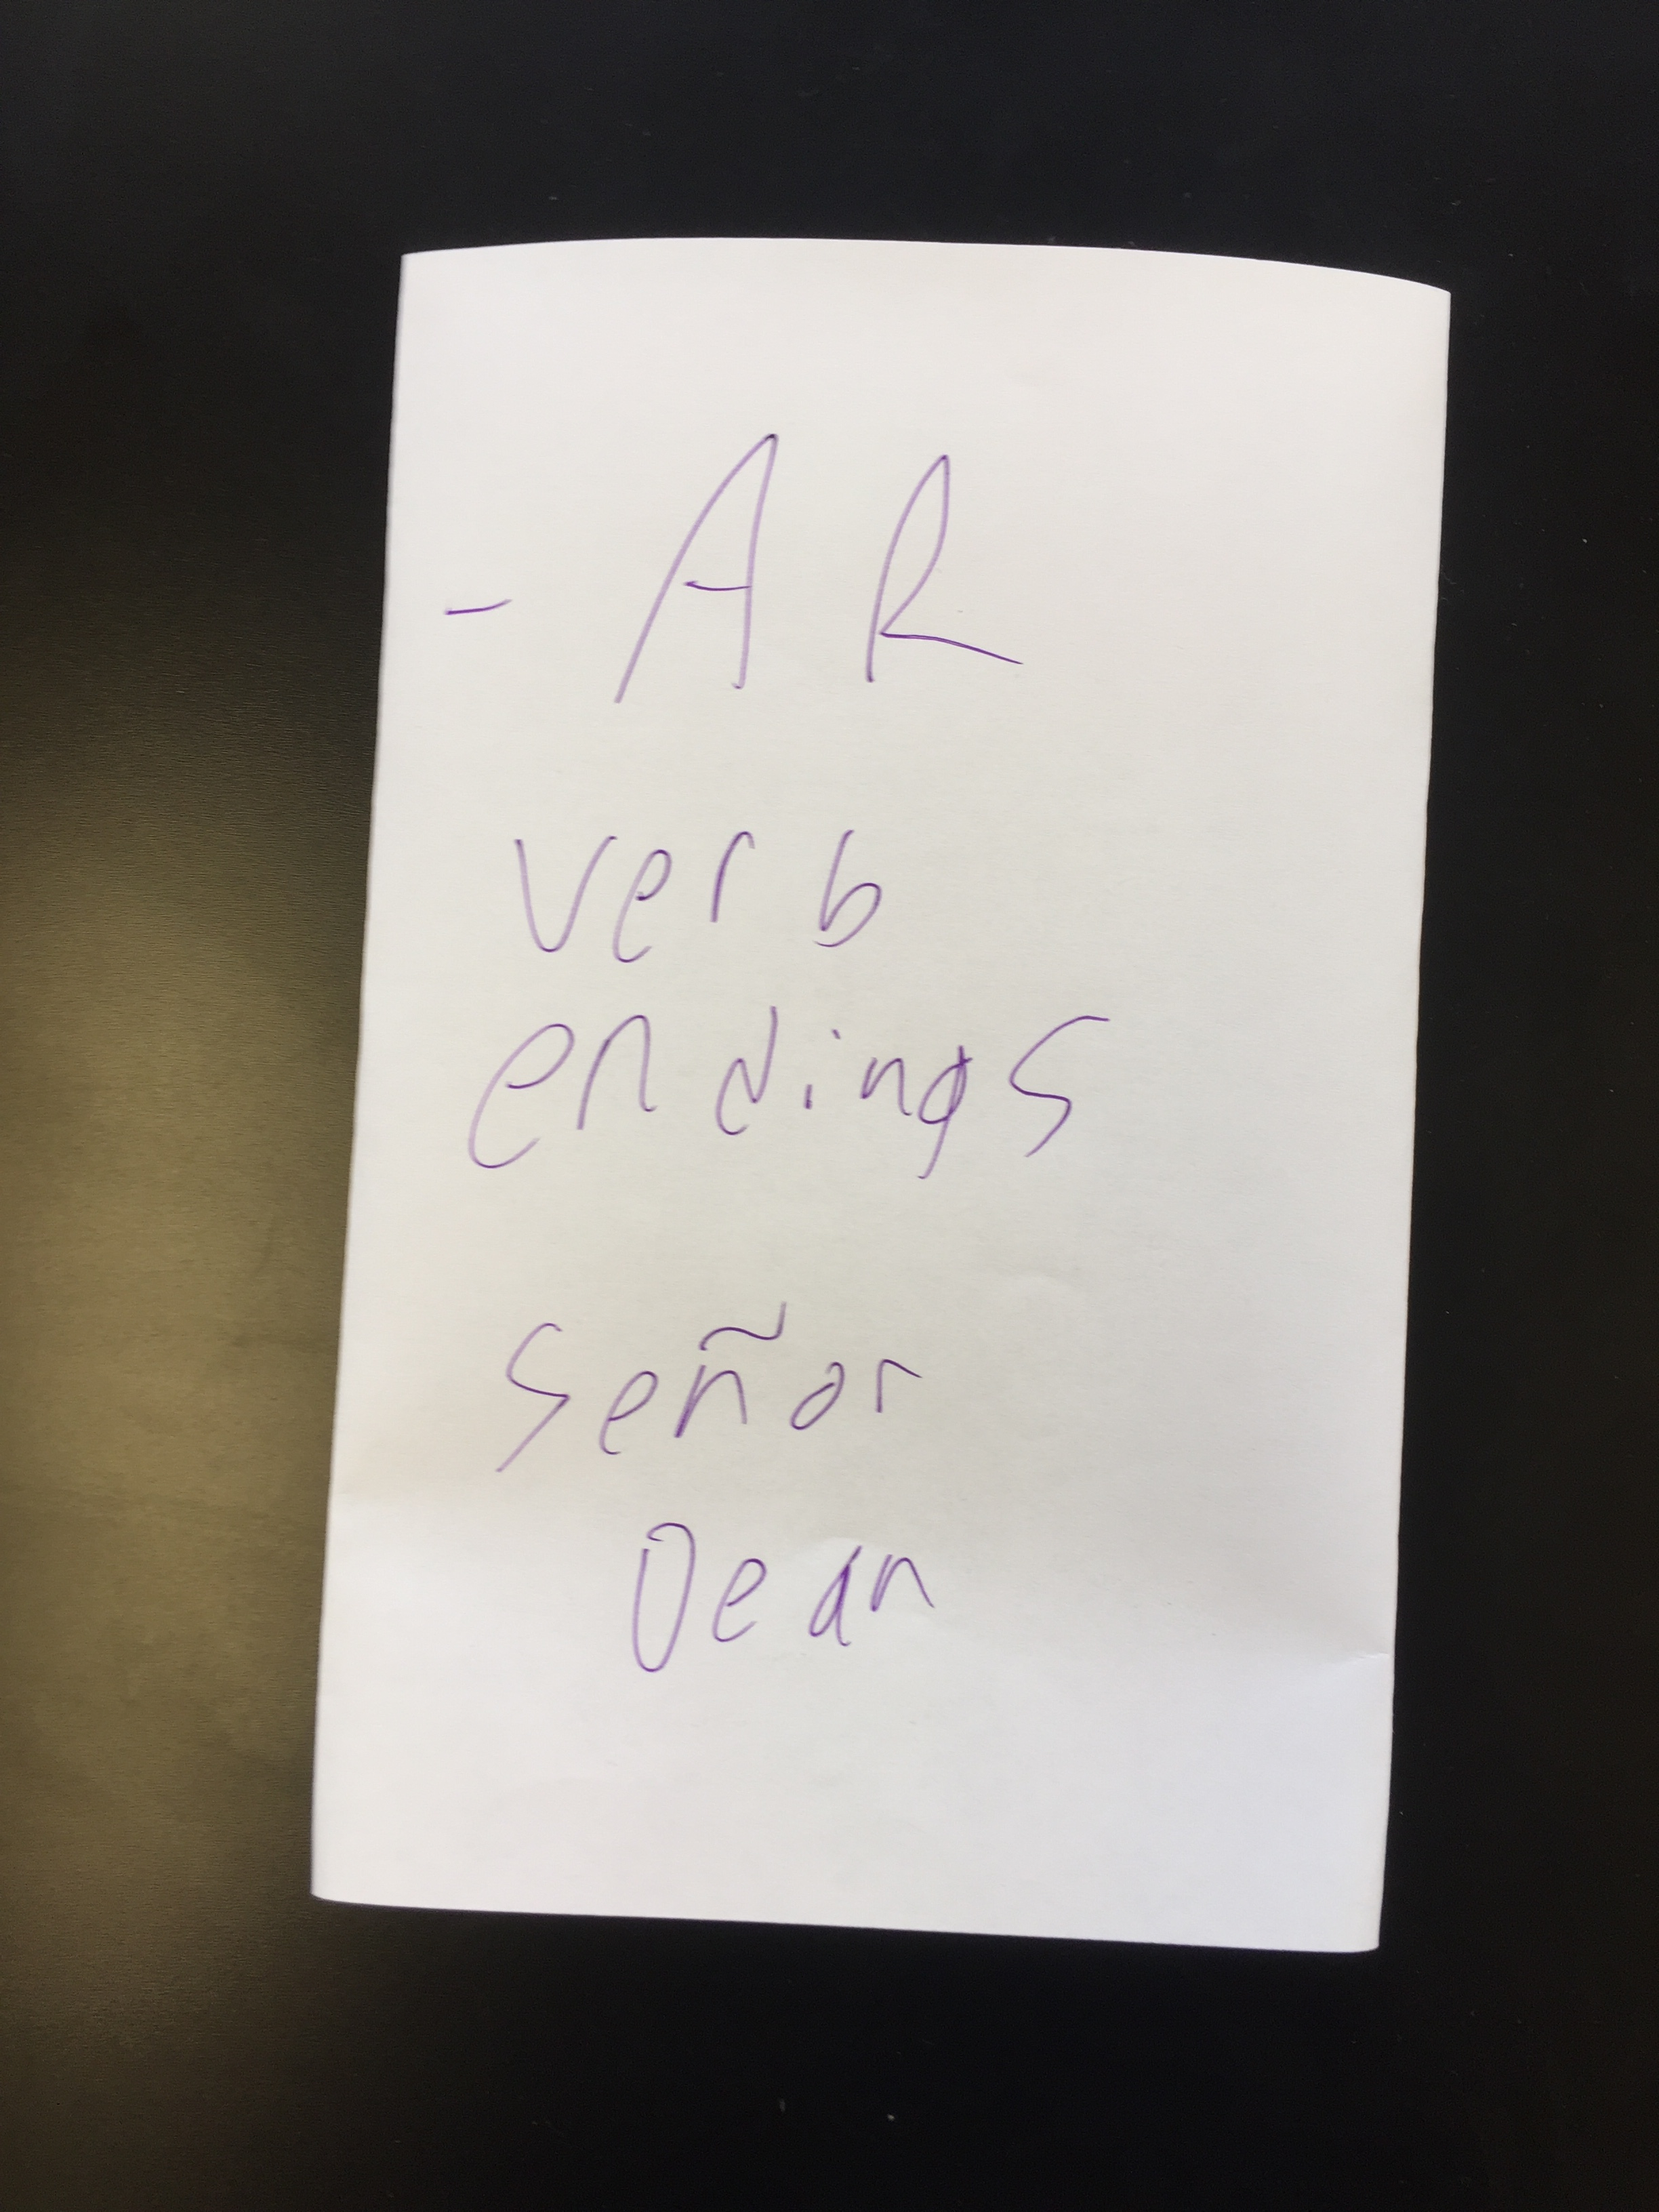 - AR
verb
endings
señor
Dean